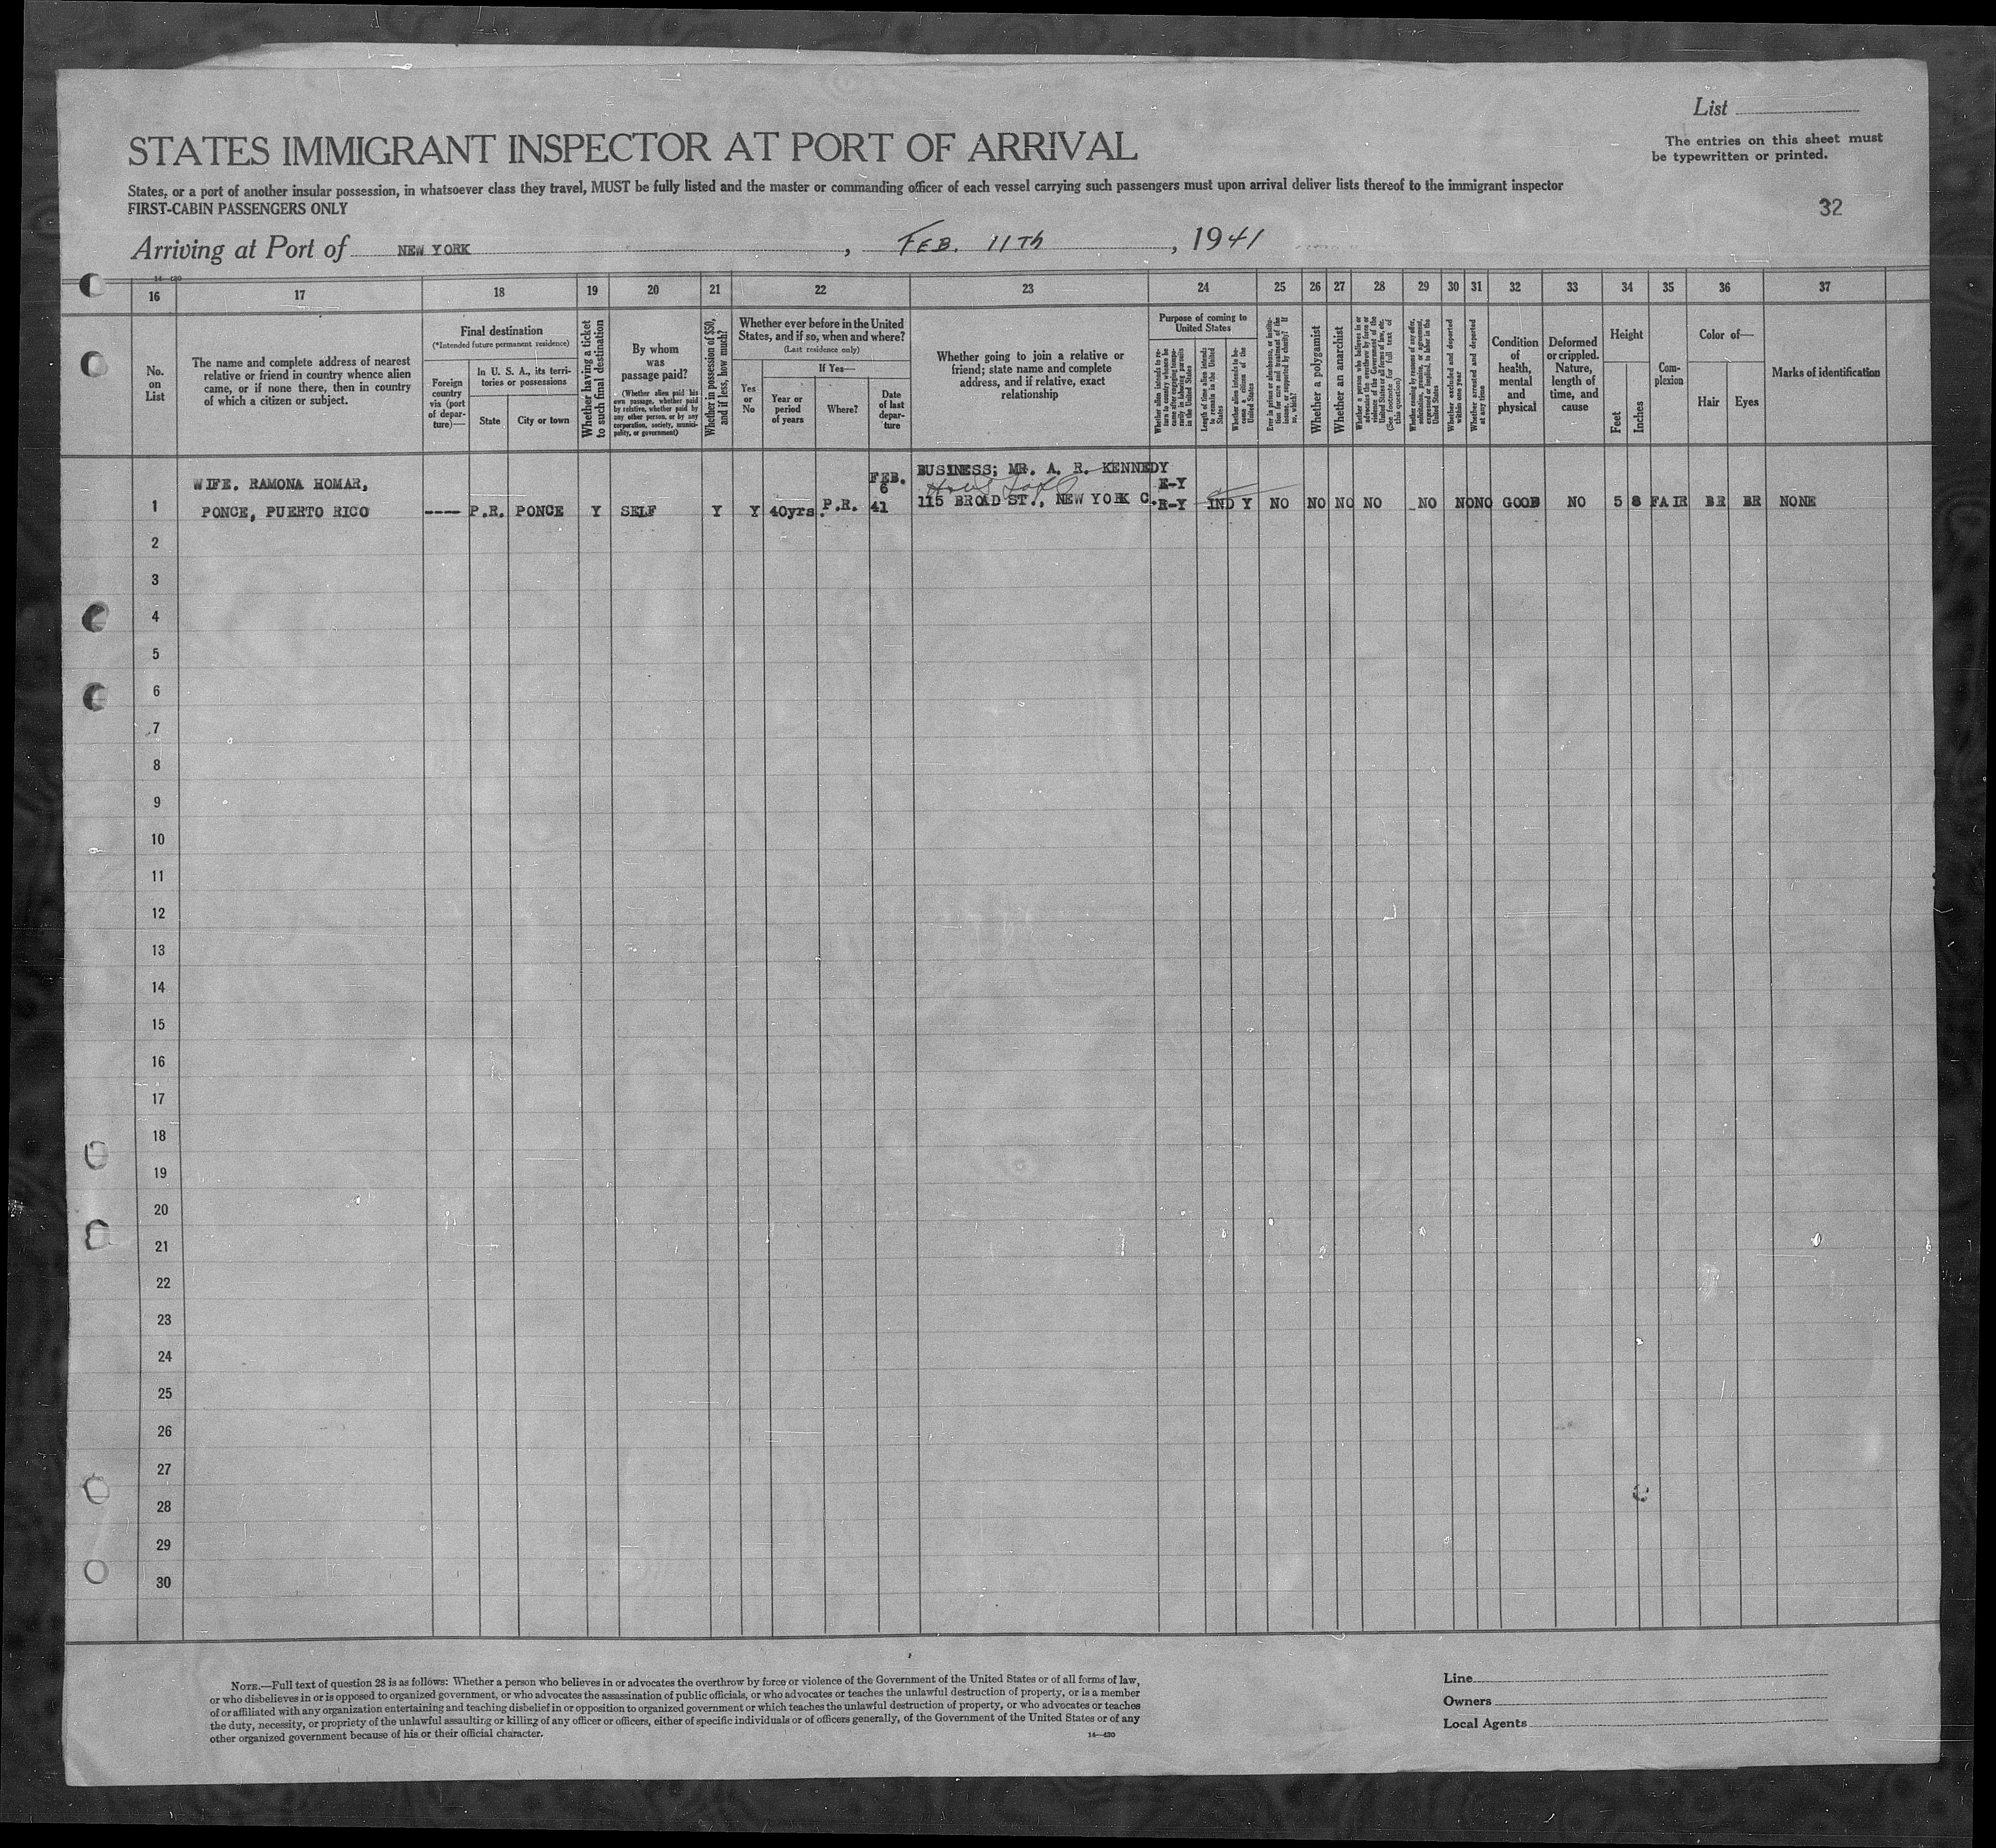 List
STATES IMMIGRANT INSPECTOR AT PORT OF ARRIVAL
The entries on this sheet must
be typewritten or printed.
States, or a port of another insular possession, in whatsoever class they travel, MUST be fully listed and the master or commanding officer of each vessel carrying such passengers must upon arrival deliver lists thereof to the immigrant inspector
FIRST-CABIN PASSENGERS ONLY
32
Arriving at Port of NEW YORK, FEB. 11TH, 1941
16 17 18 19 20 21 22 23 24 25 26 27 28 29 30 31 32 33 34 35 36 37
No.
on
List
The name and complete address of nearest
relative or friend in country whence alien
came, or if none there, then in country
of which a citizen or subject.
Final destination
(*Intended future permanent residence)
Foreign
country
via (port
of depar-
ture)—
In U. S. A., its terri-
tories or possessions
State
City or town
Whether having a ticket
to such final destination
By whom
was
passage paid?
(Whether alien paid his
own passage, whether paid
by relative, whether paid by
any other person, or by any
corporation, society, munici-
pality, or government)
Whether in possession of $50,
and if less, how much?
Whether ever before in the United
States, and if so, when and where?
(Last residence only)
Yes
or
No
If Yes—
Year or
period
of years
Where?
Date
of last
depar-
ture
Whether going to join a relative or
friend; state name and complete
address, and if relative, exact
relationship
Purpose of coming to
United States
Whether alien intends to re-
turn to country whence he
came after engaging tempo-
rarily in laboring pursuits
in the United States
Length of time alien intends
to remain in the United
States
Whether alien intends to be-
come a citizen of the
United States
Ever in prison or almshouse, or institu-
tion for care and treatment of the
insane, or supported by charity? If
so, which?
Whether a polygamist
Whether an anarchist
Whether a person who believes in or
advocates the overthrow by force or
violence of the Government of the
United States or all forms of law, etc.
(See footnote for full text of
this question)
Whether coming by reasons of any offer,
solicitation, promise, or agreement,
expressed or implied, to labor in the
United States
Whether excluded and deported
within one year
Whether arrested and deported
at any time
Condition
of
health,
mental
and
physical
Deformed
or crippled.
Nature,
length of
time, and
cause
Height
Feet
Inches
Com-
plexion
Color of—
Hair
Eyes
Marks of identification
WIFE. RAMONA HOMAR, FEB. BUSINESS; MR. A. R. KENNEDY
6 E-Y
1 PONCE, PUERTO RICO ---- P.R. PONCE Y SELF Y Y 40yrs. P.R. 41 115 BROAD ST., NEW YORK C. R-Y IND Y NO NO NO NO NO NO NO GOOD NO 5 8 FAIR BR BR NONE
2
3
4
5
6
7
8
9
10
11
12
13
14
15
16
17
18
19
20
21
22
23
24
25
26
27
28
29
30
NOTE.—Full text of question 28 is as follows: Whether a person who believes in or advocates the overthrow by force or violence of the Government of the United States or of all forms of law,
or who disbelieves in or is opposed to organized government, or who advocates the assassination of public officials, or who advocates or teaches the unlawful destruction of property, or is a member
of or affiliated with any organization entertaining and teaching disbelief in or opposition to organized government or which teaches the unlawful destruction of property, or who advocates or teaches
the duty, necessity, or propriety of the unlawful assaulting or killing of any officer or officers, either of specific individuals or of officers generally, of the Government of the United States or of any
other organized government because of his or their official character.
14—430
Line
Owners
Local Agents